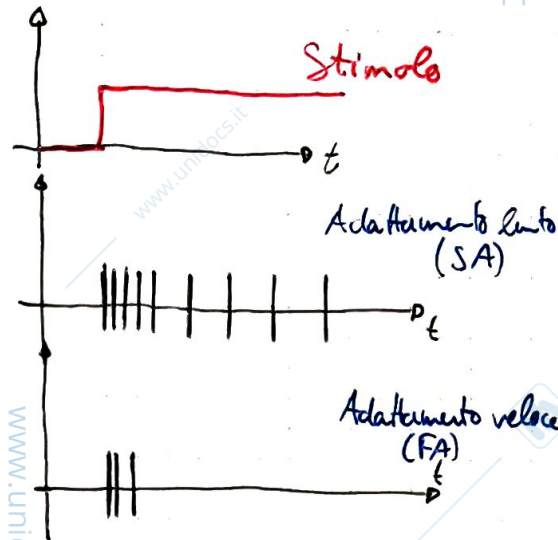 Stimolo
t
www.unidocs.it
Adattamento lento
(SA)
t
Adattamento veloce
(FA)
t
www.unid